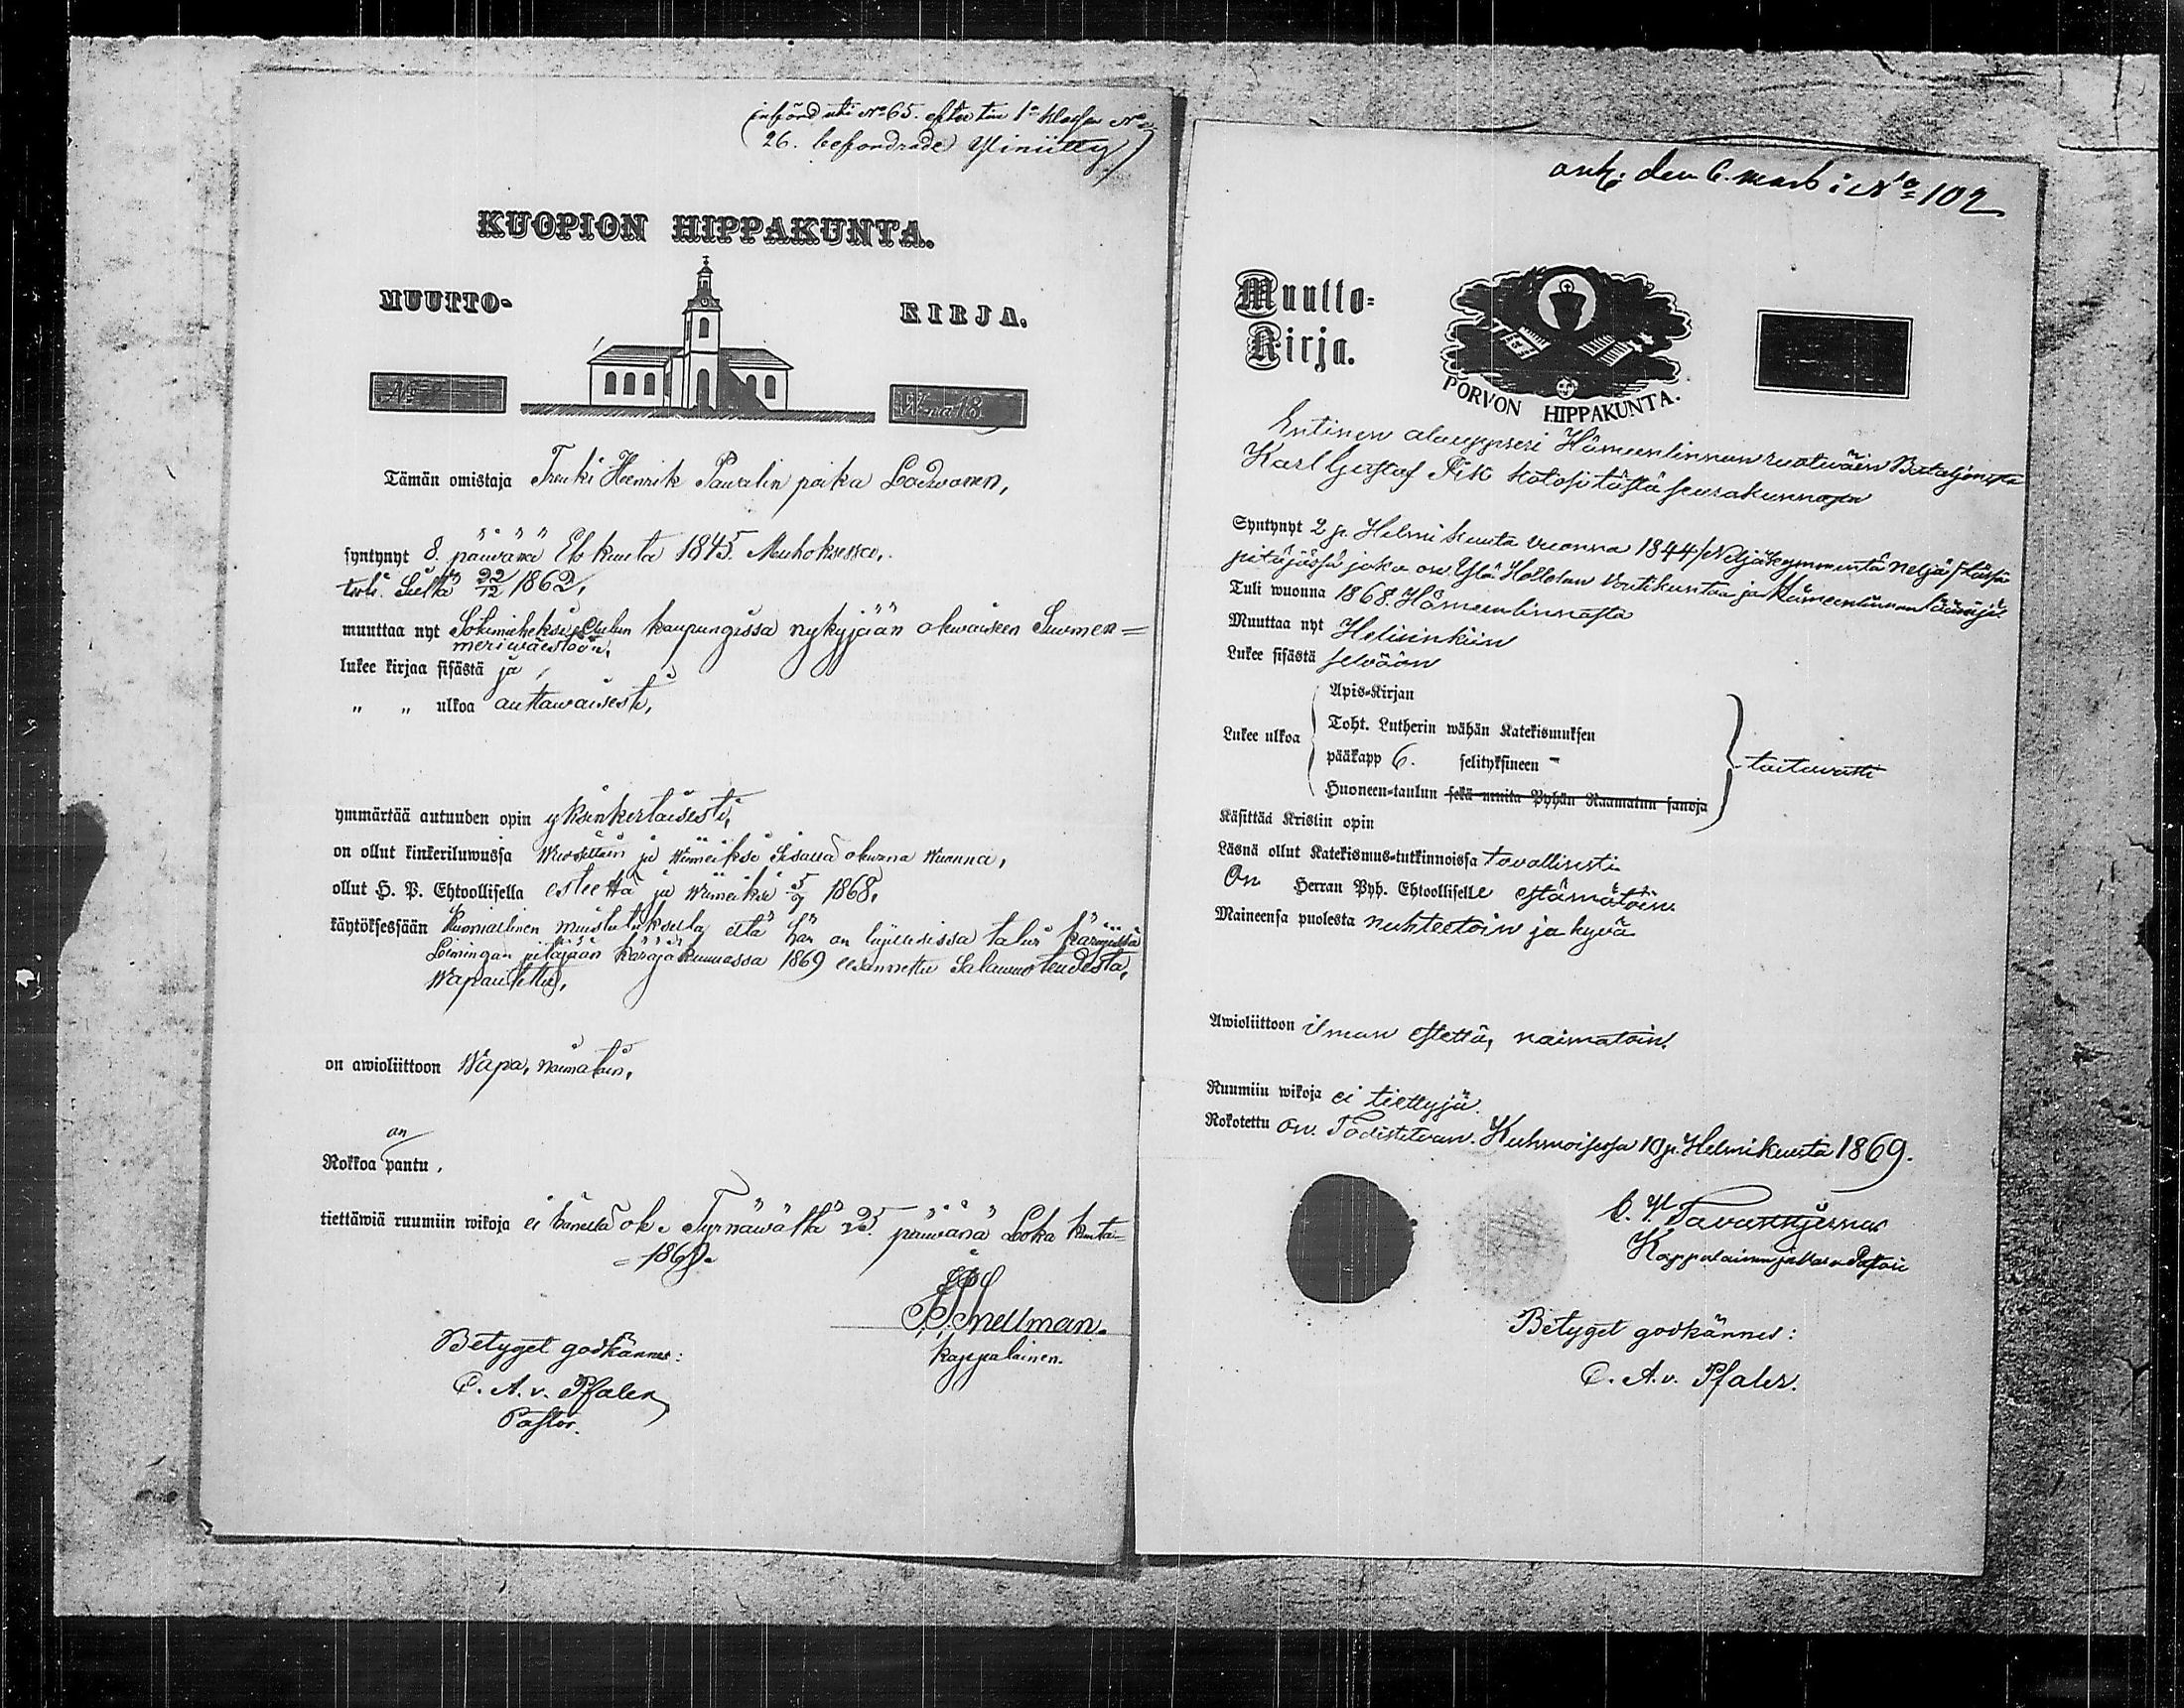 införd uti No 65. efter den 1a klassen No
26. befordrade Ylinütty
KUOPION HIPPAKUNTA.
MUUTTO-
KIRJA.
No
W-nna 18
Tämän omistaja Trenki Henrik Paavalin poika
syntynyt 8. päiwänä Elokuuta 1845. Muhoksessa,
tuli. Sieltä 22/12 1862,
muuttaa nyt Sotimieheksi Oulun kaupungissa nykyjään olewaiseen Suomen=
meriwäestöön,
lukee kirjaa sisästä ja,
" " ulkoa auttawaisesti,
ymmärtää autuuden opin yksinkertaisesti,
on ollut kinkeriluwussa Wuosittain ja wiimeiksi sisällä olewana wuonna,
ollut H. P. Ehtoollisella esteettä ja wiimeiksi 5/7 1868,
käytöksessään Kunniallinen muistutuksella että hän on syyllisissa talwi käräjissä
Limingan pitäjään käräjäkunnassa 1869
Wapautettu,
on awioliittoon Wapa, naimatoin,
on
Rokkoa pantu.
tiettäwiä ruumiin wikoja ei hänellä ole. Tyrnäwältä 25. päiwänä Loka kuuta=
= 1869.
Snellman.
Kappalainen.
Betyget godkännes:
C. A. v. Pfaler
Pastor.
ank. den 6. mars i No 102
Muutto=
Kirja.
PORVON HIPPAKUNTA.
Entinen alauppseri Hämeenlinnan ruotuwäen Bataljonista
Karl Gustaf Fik kotosi tästä seurakunnasta
Syntynyt 2 p. Helmi kuuta vuonna 1844 /Neljäkymmentä neljä/ tässä
pitäjässä joka on Ylä Hollolan Voutikuntaa ja Hämeenlinnan lääniä.
Tuli wuonna 1868. Hämeenlinnasta
Muuttaa nyt Helsinkiin
Lukee sisästä selvään
Apis-Kirjan
Toht. Lutherin wähän Katekismuksen
Lukee ulkoa
pääkapp 6. selityksineen -
taitavasti
Huoneen-taulun sekä muita Pyhän Raamatun sanoja
Käsittää Kristin opin
Läsnä ollut Katekismus-tutkinnoissa tavallisesti
On Herran Pyh. Ehtoolliselle estämätöin.
Maineensa puolesta nuhteetoin ja hyvä
Awioliittoon ilman estettä, naimatoin.
Ruumiin wikoja ei tiettyjä.
Rokotettu on. Todistetaan. Kuhmoisissa 10 p. Helmikuuta 1869.
Kappalainen ja Vara Pastori
Betyget godkännes:
C. A. v. Pfaler.